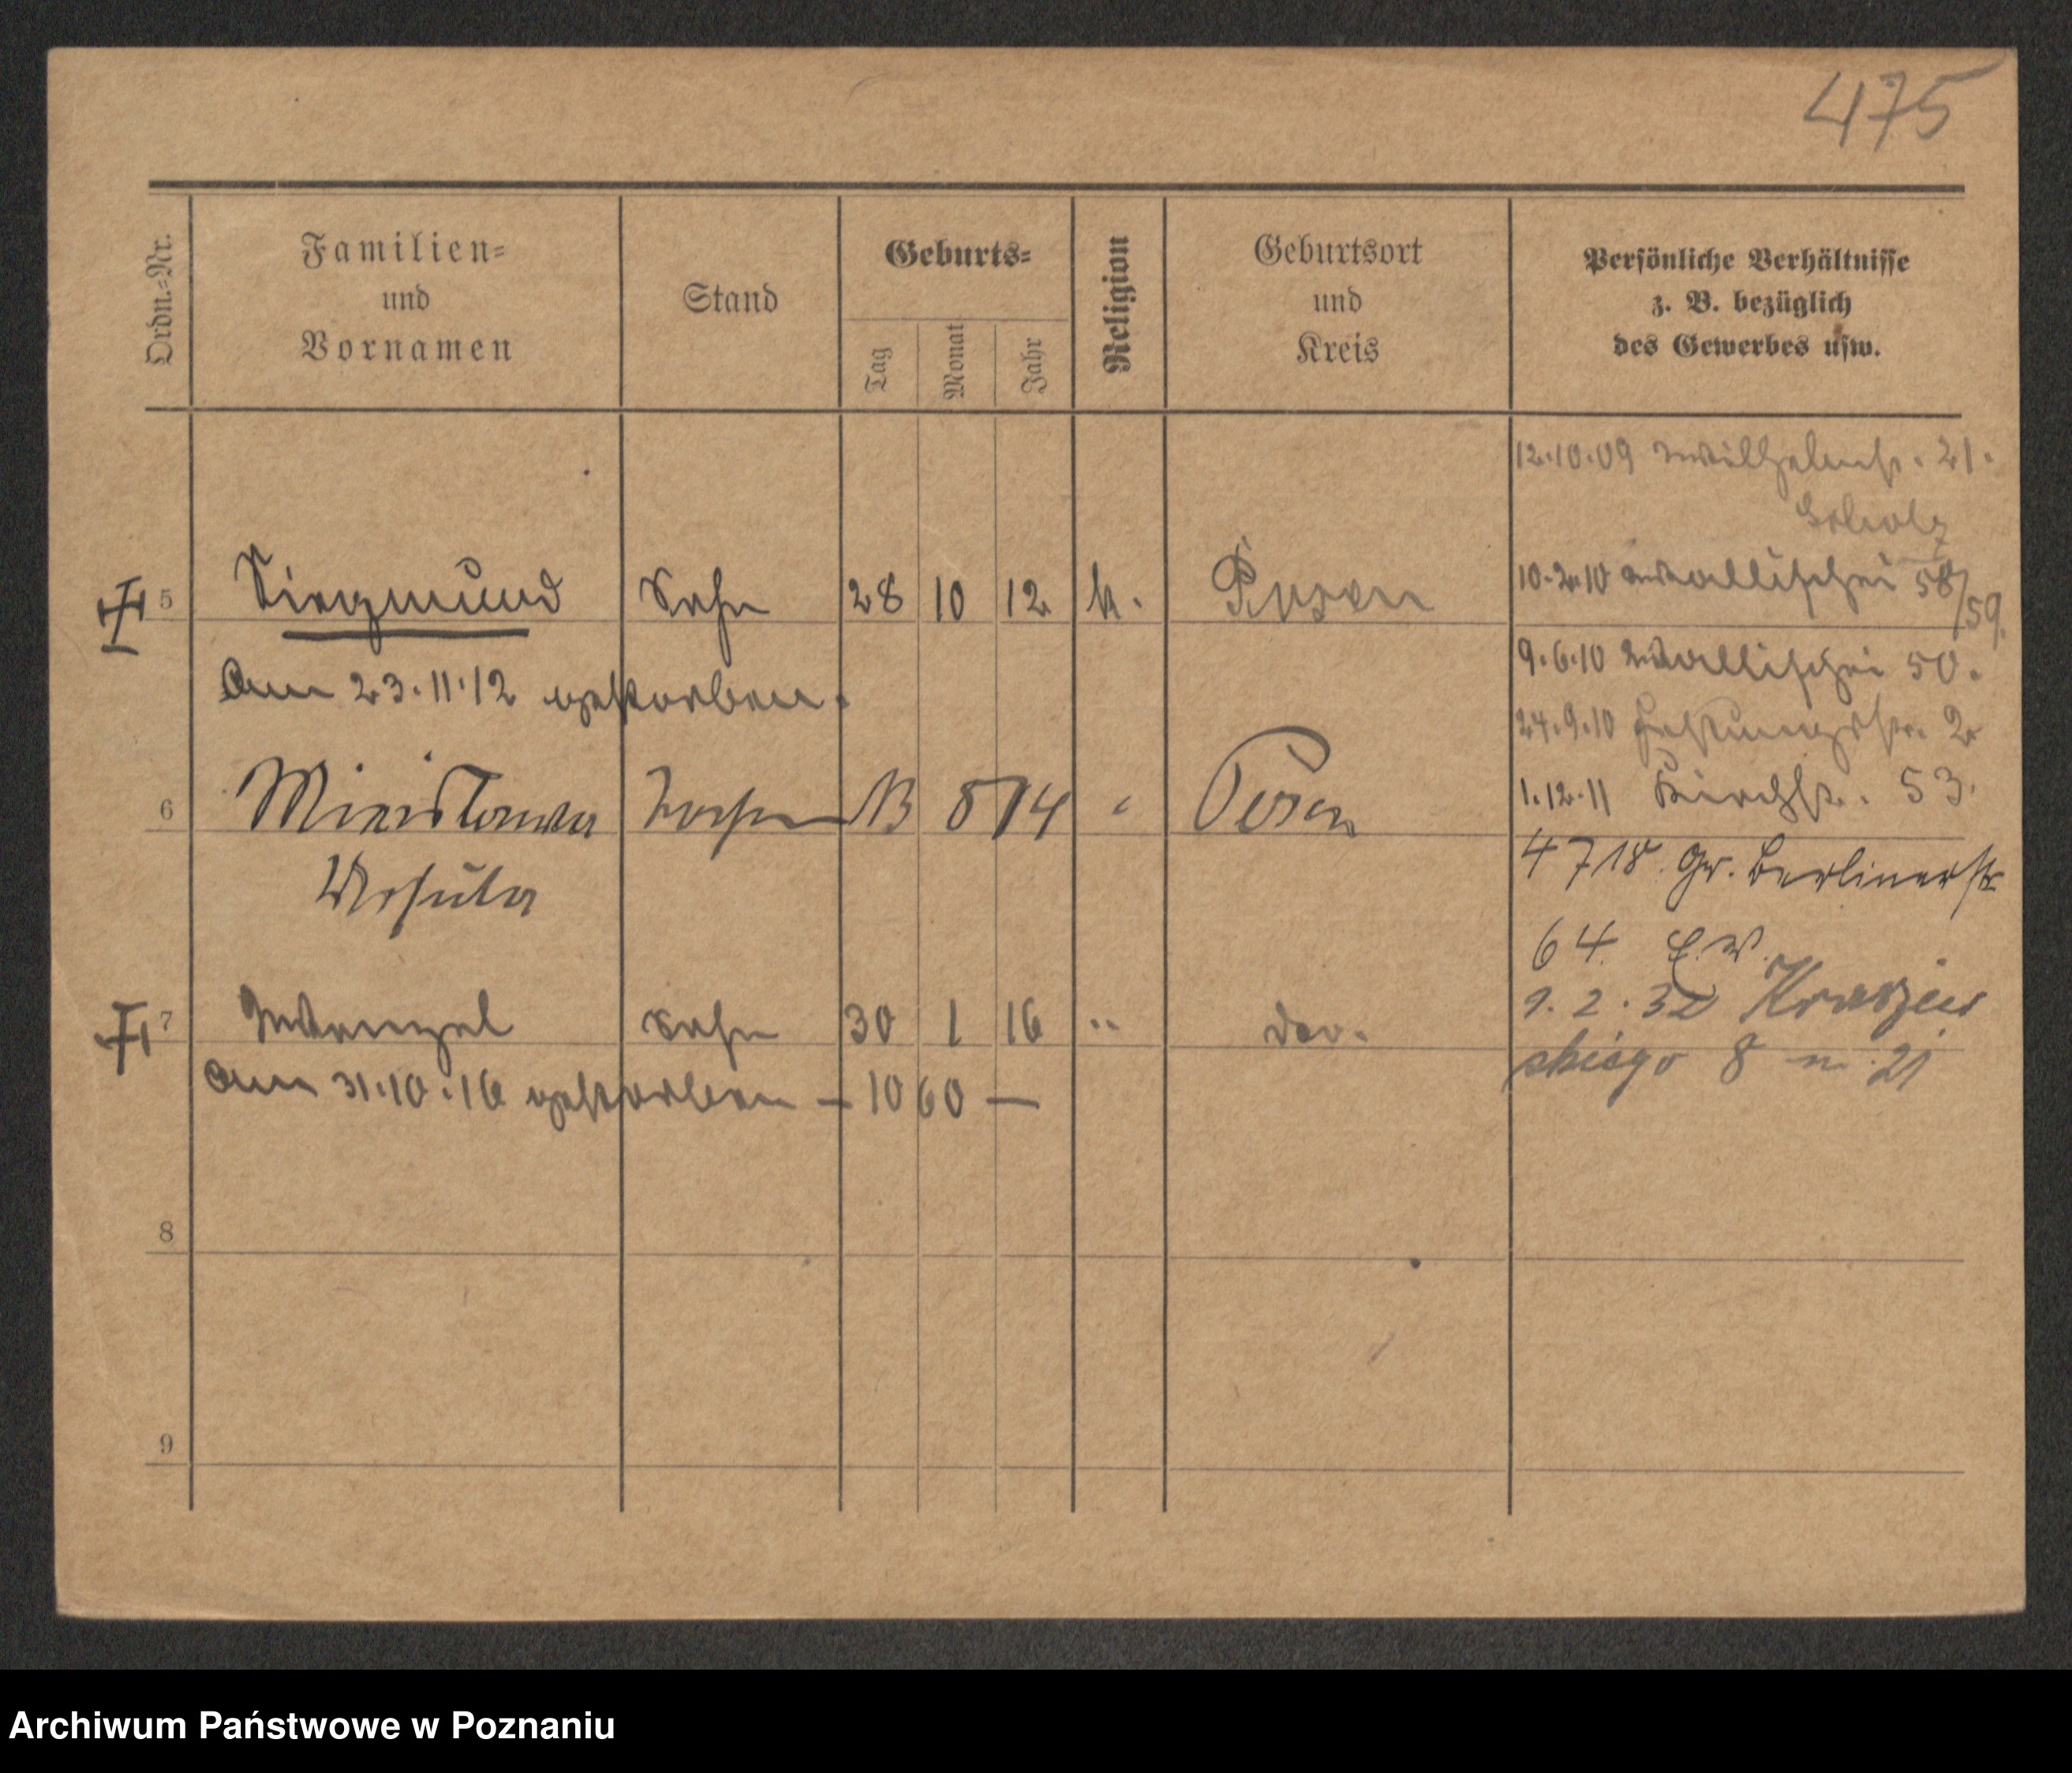 475
Ordn.-Nr. Familien- und Vornamen Stand Geburts- Tag Monat Jahr Religion Geburtsort und Kreis Persönliche Verhältnisse z. B. bezüglich des Gewerbes usw.
12.10.09 Wilhelmstr. 21.
Scholz
10.2.10 Wallischei 58/59.
5 Siegmund Sohn 28 10 12 k. Posen
9.6.10 Wallischei 50.
Am 23.11.12 gestorben.
24.9.10 Festungsstr. 2
1.12.11 Kirchstr. 53.
6 Mieislawa 13 8 14 " Posen
4 7 18. Gr. Berlinerstr
Ursula
64. E.W.
1.2.32 Kraszew
7 Wenzel Sohn 30 1 16 " do.
skiego 8 m. 21
Am 31.10.16 gestorben – 1060 –
8
9
Archiwum Państwowe w Poznaniu